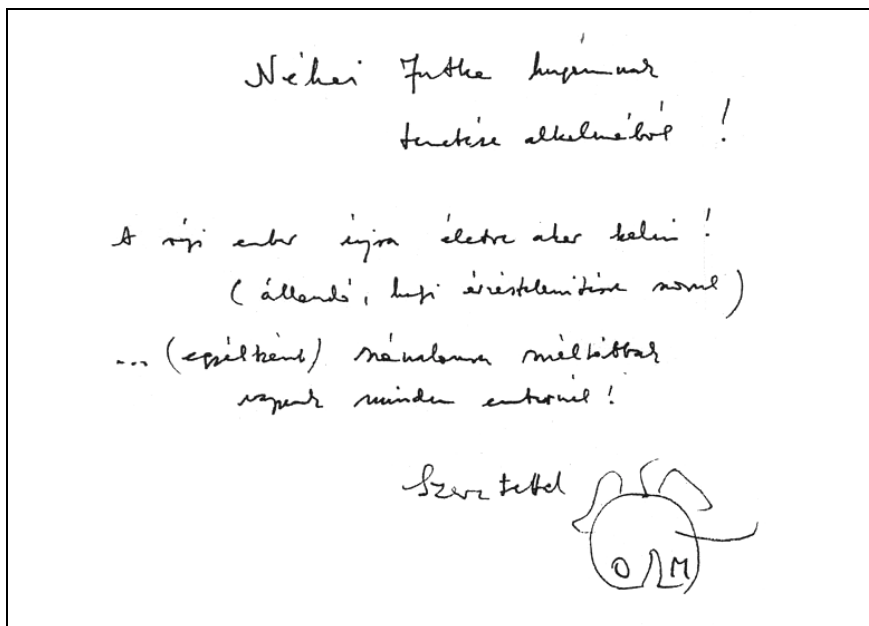 Néhai Jutka hugámnak
temetése alkalmából !
A régi ember újra életre akar kelni !
( állandó, érzéstelenítése )
... (egyébként) szánalomra méltóbbak
vagyunk minden embernél !
Szeretettel
O M